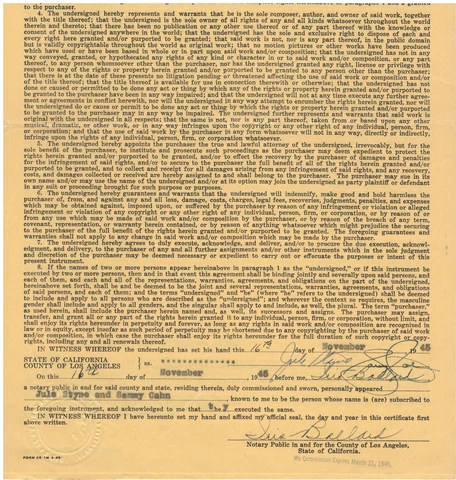 the purchaser.
4. The undersigned hereby represents and warrants that he is the sole composer, author, and owner of said work, together
with the title thereof; that the undersigned is the sole owner of all rights of any and all kinds whatsoever throughout the world
therein and thereto; that there has been no publication or any other use thereof or of any part thereof with the knowledge or
consent of the undersigned anywhere in the world; that the undersigned has the sole and exclusive right to dispose of each and
every right herein granted and/or purported to be granted; that said work is not, nor is any part thereof, in the public domain
but is validly copyrightable throughout the world as original work; that no motion pictures or other works have been produced
which have used or have been based in whole or in part upon said work and/or composition; that the undersigned has not in any
way conveyed, granted, or hypothecated any rights of any kind or character in or to said work and/or composition, or any part
thereof, to any person whomsoever other than the purchaser, nor has the undersigned granted any right, license or privilege with
respect to any of the rights or property herein granted and/or purported to be granted to any person other than the purchaser;
that there is at the date of these presents no litigation pending or threatened affecting the use of said work or composition and/or
of the title thereof; that the title thereof is available for use in connection therewith or otherwise; that the undersigned has not
done or caused or permitted to be done any act or thing by which any of the rights or property herein granted and/or purported to
be granted to the purchaser have been in any way impaired; and that the undersigned will not at any time execute any further agree-
ment or agreements in conflict herewith, nor will the undersigned in any way attempt to encumber the rights herein granted, nor will
the undersigned do or cause or permit to be done any act or thing by which the rights or property herein granted and/or purported
to be granted to the purchaser may in any way be impaired. The undersigned further represents and warrants that said work is
original with the undersigned in all respects; that no part thereof is, nor is any part thereof, taken from or based upon any other
musical, dramatic, or other work, or any motion picture, or the copyright or any other right of any individual, person, firm,
or corporation; and that the use of said work by the purchaser in any form whatsoever will not in any way, directly or indirectly,
infringe upon the rights of any individual, person, firm, or corporation whatsoever.
5. The undersigned hereby appoints the purchaser the true and lawful attorney of the undersigned, irrevocably, but for the
sole benefit of the purchaser, to institute and prosecute such proceedings as the purchaser may deem expedient to protect the
rights herein granted and/or purported to be granted, and/or to effect the recovery by the purchaser of damages and penalties
for the infringement of said rights, and/or to secure to the purchaser the full benefit of all of the rights herein granted and/or
purported to be granted, and to collect and receipt for all damages arising from infringements of said rights, and any recovery,
costs, and damages collected or received are hereby assigned to and shall belong to the purchaser. The purchaser may sue in its
own name and/or may use the name of the undersigned and/or at its option may join the undersigned as party plaintiff or defendant
in any suit or proceeding brought for such purpose or purposes.
6. The undersigned hereby guarantees and warrants that the undersigned will indemnify, make good and hold harmless the
purchaser of, from, against and any and all loss, damage, costs, charges, legal fees, recoveries, judgments, penalties, and expenses
which may be obtained against, imposed upon, or suffered by the purchaser by reason of any infringement or violation or alleged
infringement or violation of any copyright or any other right of any individual, person, firm, or corporation, or by reason of or
from any use which may be made of said work and/or composition by the purchaser, or by reason of the breach of any term,
covenant, representation, or warranty herein contained, or by reason of anything whatsoever which might prejudice the securing
to the purchaser of the full benefit of the rights herein granted and/or purported to be granted. The foregoing guaranties and
warranties shall not apply to any change in said work and/or composition which may be made by the purchaser.
7. The undersigned hereby agrees to duly execute, acknowledge, and deliver, and/or to procure the due execution, acknowl-
edgment, and delivery, to the purchaser of any and all further assignments and/or other instruments which in the sole judgment
and discretion of the purchaser may be deemed necessary or expedient to carry out or effectuate the purposes or intent of this
present instrument.
8. If the names of two or more persons appear hereinabove in paragraph 1 as the "undersigned," or if this instrument be
executed by two or more persons, then and in that event this agreement shall be binding jointly and severally upon said persons, and
each of them, and each and all of the terms, conditions, warranties, agreements, and obligations on the part of the undersigned,
hereinabove set forth, shall be and be deemed to be the joint and several representations, warranties, agreements, and obligations
of said persons, and each of them; and the term "undersigned" and the word "he" (where "he" refers to the undersigned) shall be deemed
to include and apply to all persons who are described as the "undersigned"; and wherever the context so requires, the masculine
gender shall include and apply to all genders, and the singular shall apply to and include, as well, the plural. The term "purchaser"
as used herein, shall include the purchaser herein named and, as well, its successors and assigns. The purchaser may assign,
transfer, and grant all or any part of the rights herein granted it to any individual, person, firm, or corporation, without limit, and
shall enjoy its rights hereunder in perpetuity and forever, as long as any rights in said work and/or composition are recognized in
law or in equity, except insofar as such period of perpetuity may be shortened due to any copyrighting by the purchaser of said work
and/or composition, in which case the purchaser shall enjoy its rights hereunder for the full duration of such copyright or copy-
rights, including any and all renewals thereof.
IN WITNESS WHEREOF the undersigned has set his hand this 16th day of November 1945
Jule Styne
STATE OF CALIFORNIA
COUNTY OF LOS ANGELES } ss.
On this 16th day of November 1945 before me,
a notary public in and for said county and state, residing therein, duly commissioned and sworn, personally appeared
Jule Styne and Sammy Cahn
known to me to be the person whose name is (are) subscribed to
the foregoing instrument, and acknowledged to me that they executed the same.
IN WITNESS WHEREOF I have hereunto set my hand and affixed my official seal, the day and year in this certificate first
above written.
Notary Public in and for the County of Los Angeles,
State of California.
My Commission Expires March 21, 1946.